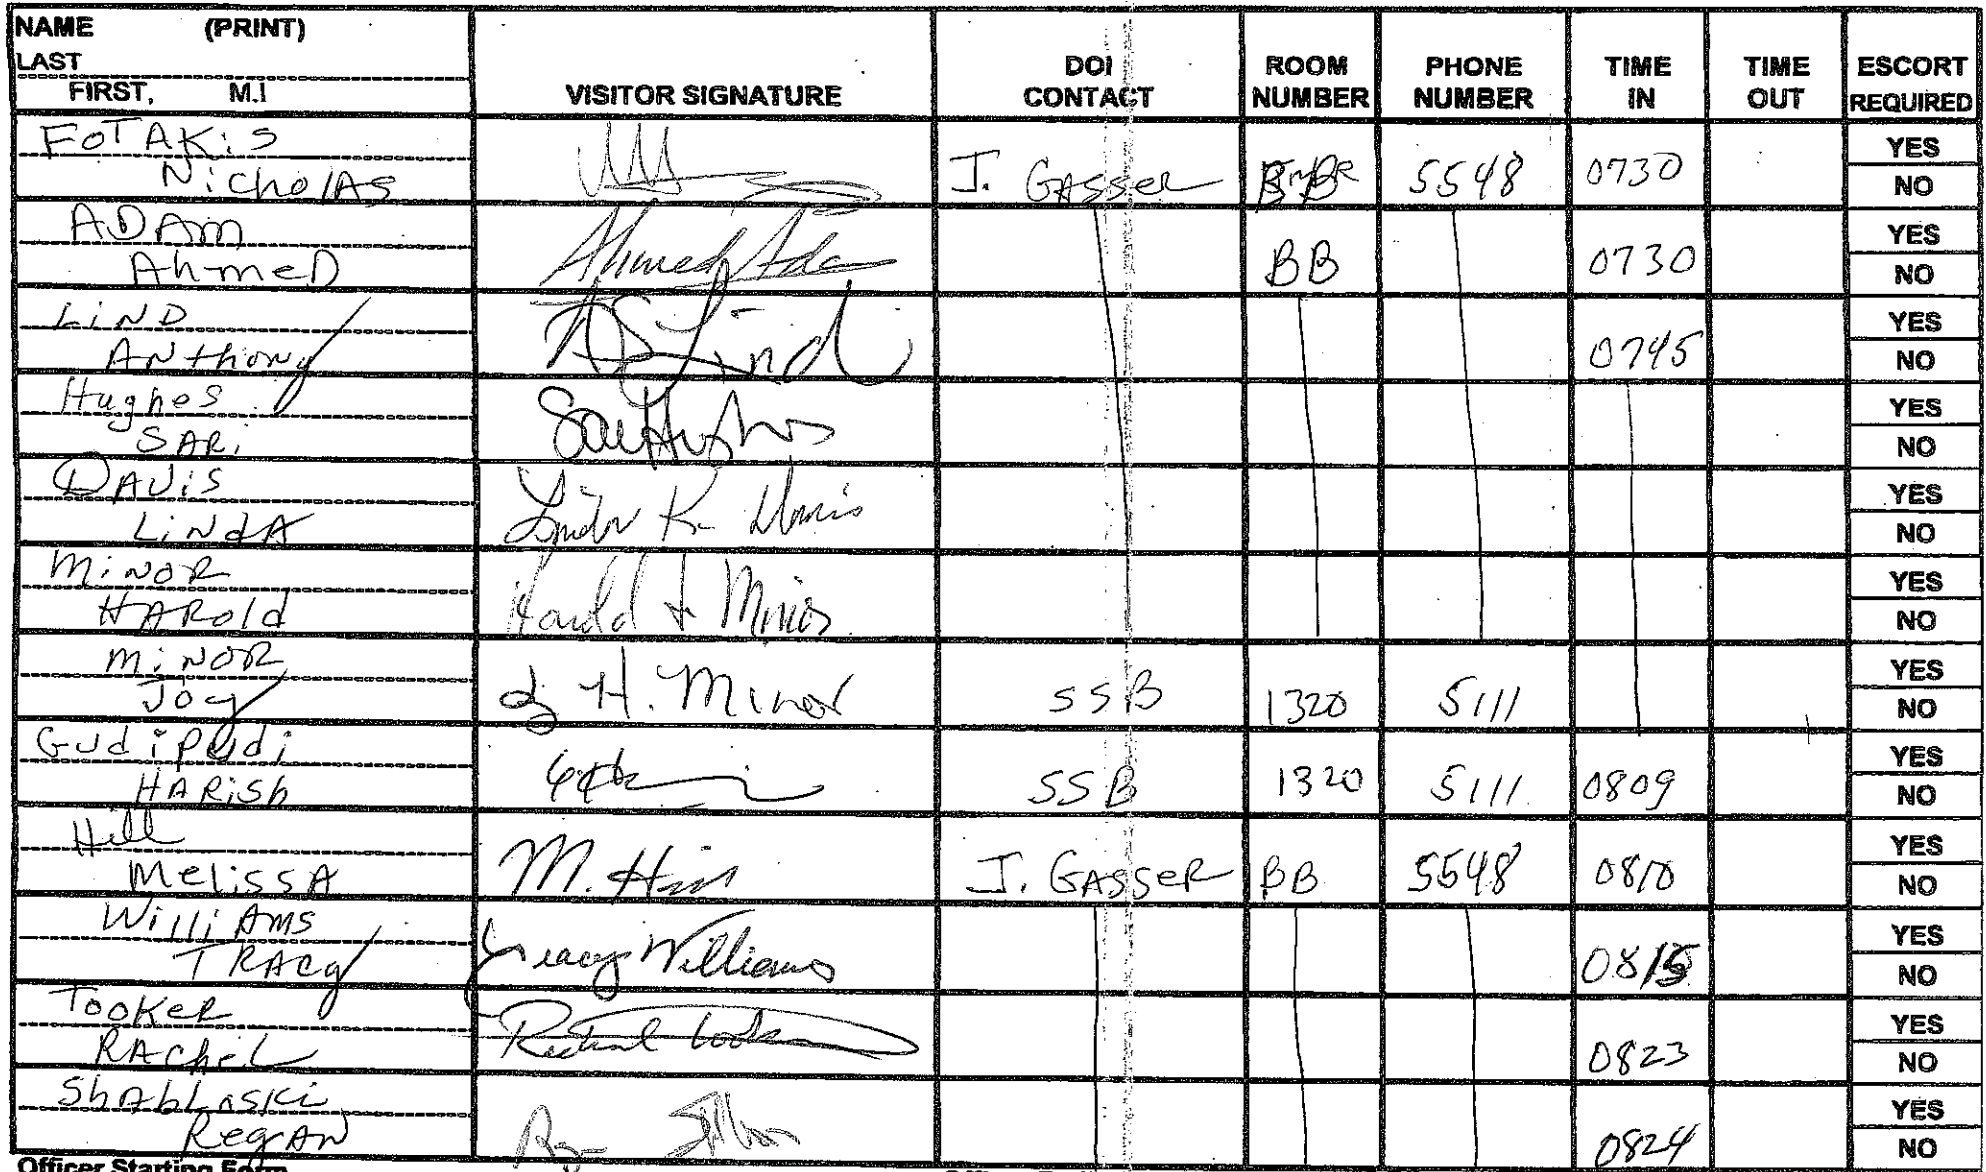 NAME (PRINT)
LAST
FIRST, M.I
VISITOR SIGNATURE
DOI CONTACT
ROOM NUMBER
PHONE NUMBER
TIME IN
TIME OUT
ESCORT REQUIRED
FOTAKiS
NicholAS J. GASSER 5548 0730 YES NO
ADAm
AhmeD Ahmed Ada BB 0730 YES NO
LiND
ANthony A Lind 0745 YES NO
Hughes
SARi Sari Hughes YES NO
DAViS
LiNdA Linda K Davis YES NO
MiNOR
HARold Harold Minor YES NO
MiNOR
Joy J H. Minor SSB 1320 5111 YES NO
Gudipudi
HARiSh SSB 1320 5111 0809 YES NO
Hill
MeliSSA M. Hill J. GASSER BB 5548 0810 YES NO
WilliAMS
TRAcy Tracy Williams 0815 YES NO
TooKeR
RAcheL Rachel Tooker 0823 YES NO
ShAbLaSKi
RegAN 0824 YES NO
Officer Starting Form